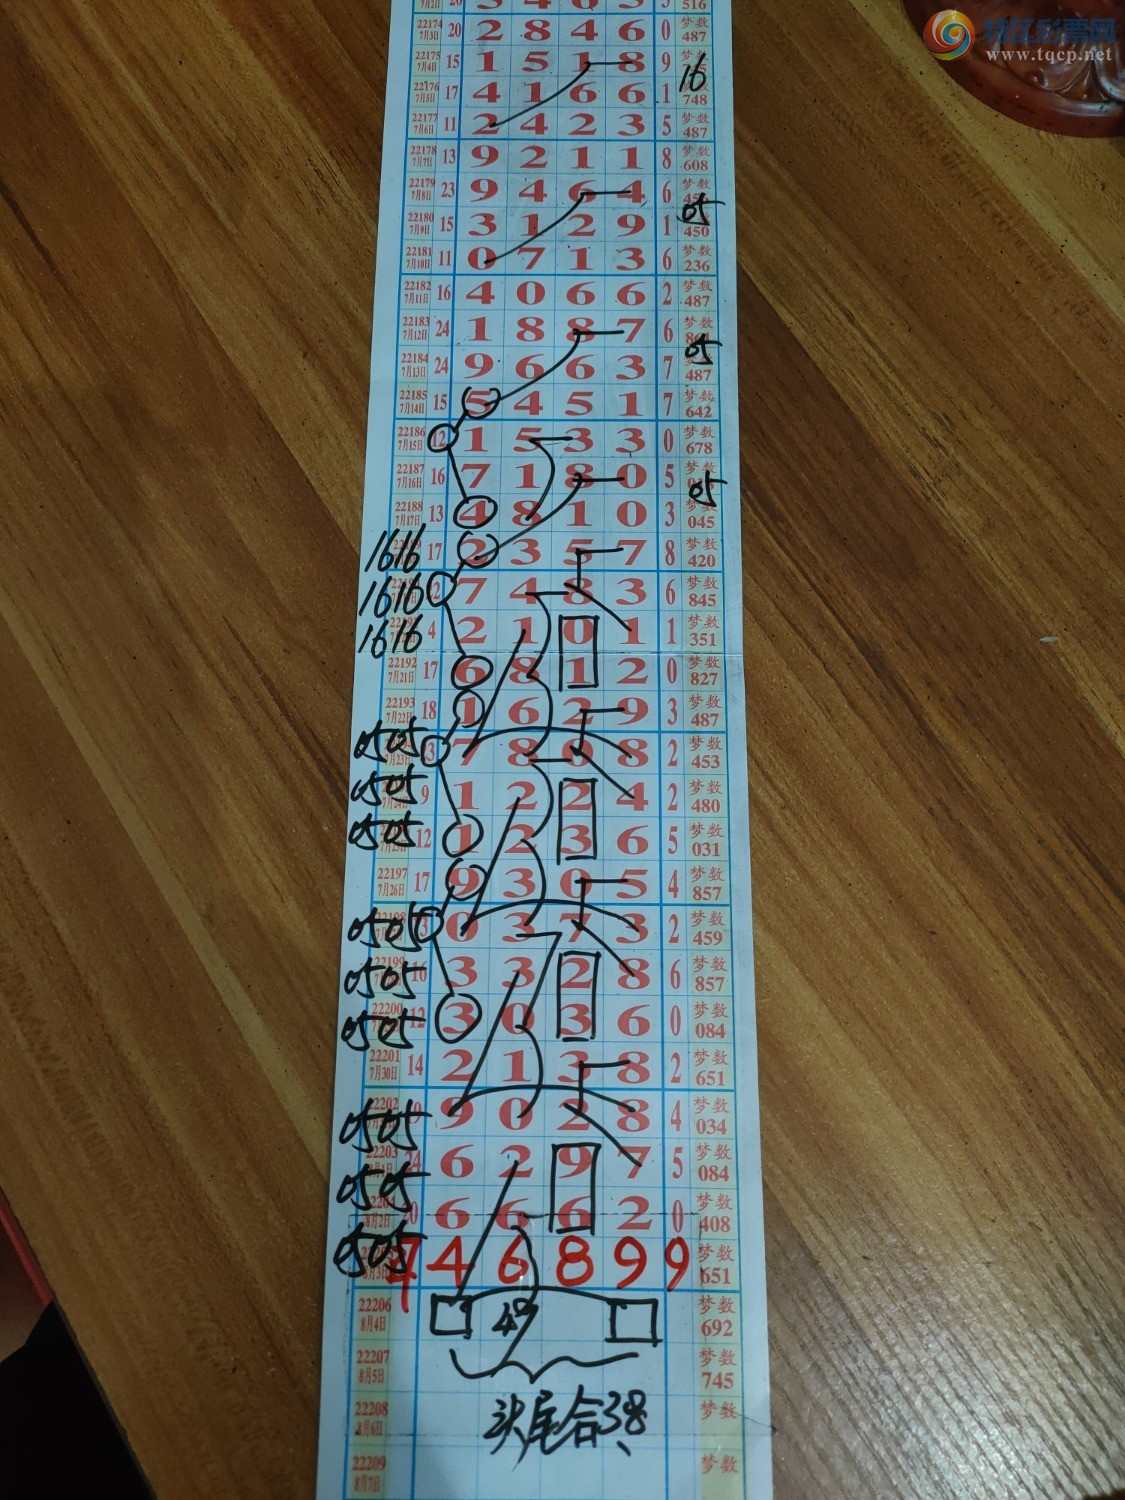 特区彩票网
www.tqcp.net
7月2日 20 3 4 6 3 5 516
22174 7月3日 20 2 8 4 6 0 梦数 487
22175 7月4日 15 1 5 1 8 9
16
22176 7月5日 17 4 1 6 6 1 748
22177 7月6日 11 2 4 2 3 5 梦数 487
22178 7月7日 13 9 2 1 1 8 梦数 608
22179 7月8日 23 9 4 6 4 6 梦数
05
22180 7月9日 15 3 1 2 9 1 450
22181 7月10日 11 0 7 1 3 6 梦数 236
22182 7月11日 16 4 0 6 6 2 梦数 487
22183 7月12日 24 1 8 8 7 6 梦数
05
22184 7月13日 24 9 6 6 3 7 487
22185 7月14日 15 5 4 5 1 7 梦数 642
22186 7月15日 12 1 5 3 3 0 梦数 678
22187 7月16日 16 7 1 8 0 5 梦数
05
22188 7月17日 13 4 8 1 0 3 045
1616 17 2 3 5 7 8 梦数 420
1616 7 4 8 3 6 梦数 845
1616 4 2 1 0 1 1 梦数 351
22192 7月21日 17 6 8 1 2 0 梦数 827
22193 7月22日 18 1 6 2 9 3 梦数 487
0505 7 8 0 8 2 梦数 453
0505 9 1 2 2 4 2 梦数 480
0505 12 1 2 3 6 5 梦数 031
22197 7月26日 17 9 3 0 5 4 梦数 857
0505 0 3 7 3 2 梦数 459
0505 16 3 3 2 8 6 梦数 857
0505 22200 12 3 0 3 6 0 梦数 084
22201 7月30日 14 2 1 3 8 2 梦数 651
0505 22202 9 0 2 8 4 梦数 034
0505 22203 6 2 9 7 5 梦数 084
0505 8月2日 6 6 6 2 0 梦数 408
0505 4 6 8 9 9 梦数 651
22206 8月4日 49 梦数 692
22207 8月5日 梦数 745
22208 8月6日 梦数
头尾合38、
22209 8月7日 梦数